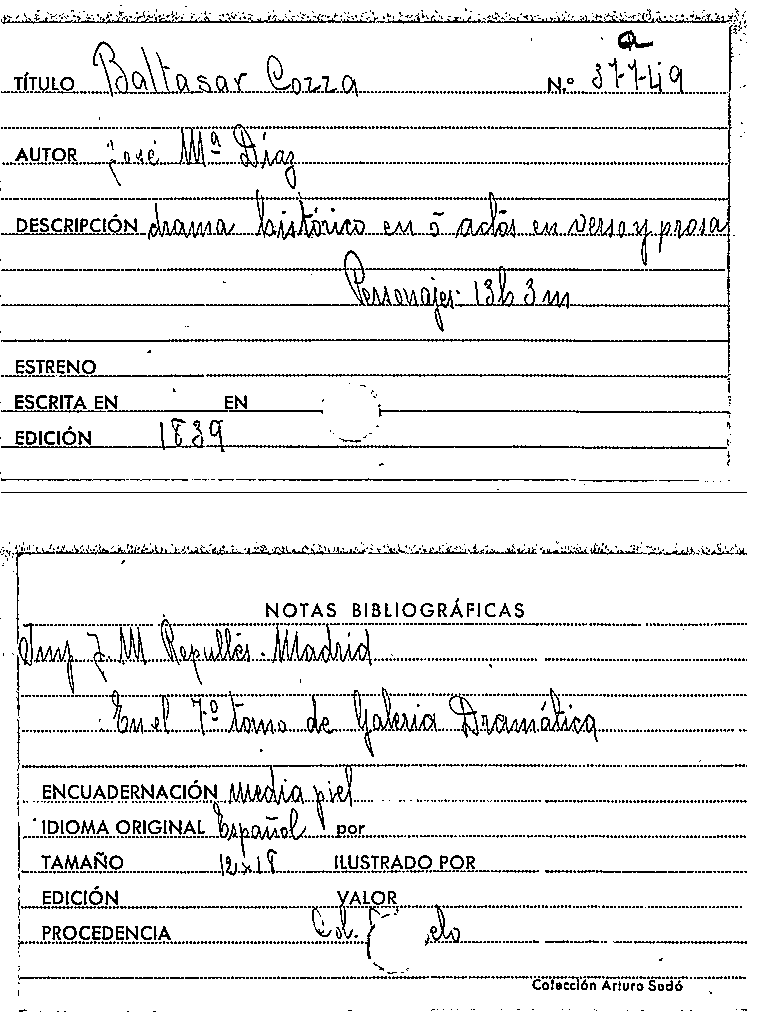 a
TÍTULO Baltasar Cozza N.º 37749
AUTOR José Mª Díaz
DESCRIPCIÓN drama histórico en 5 actos en verso y prosa
Personajes: 13h 3m
ESTRENO
ESCRITA EN EN
EDICIÓN 1839
NOTAS BIBLIOGRÁFICAS
Imp J. M Repullés. Madrid
En el 7º tomo de Galeria Dramática
ENCUADERNACIÓN media piel
IDIOMA ORIGINAL Español por
TAMAÑO 12x18 ILUSTRADO POR
EDICIÓN VALOR
PROCEDENCIA Col.
Colección Arturo Sedó